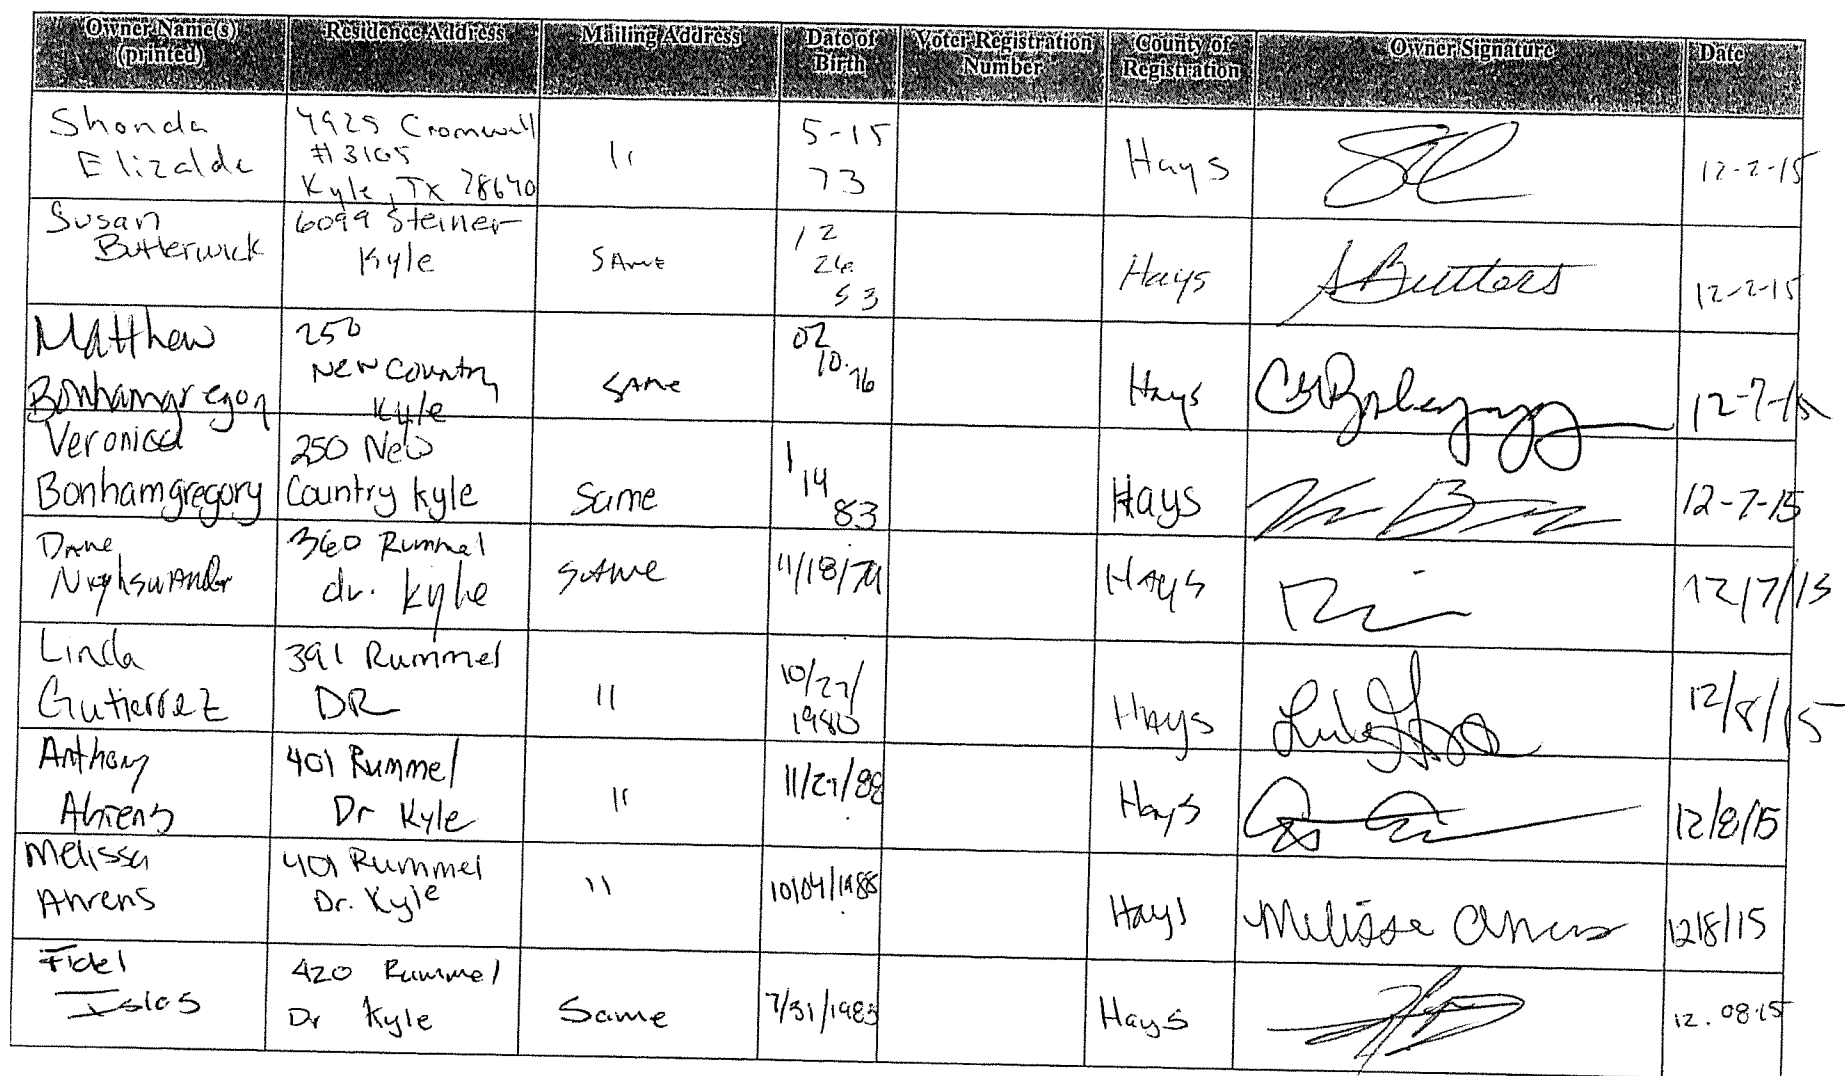 Owner Name(s) (printed) Residence Address Mailing Address Date of Birth Voter Registration Number County of Registration Owner Signature Date
Shonda Elizalde 4925 Cromwell #3105 Kyle, Tx 78640 11 5-15 73 Hays 12-2-15
Susan Butterwick 6099 Steiner Kyle SAme 12 26 53 Hays SButters 12-2-15
Matthew Bonhamgregory 250 New Country Kyle SAme 02 10-76 Hays 12-7-15
Veronica Bonhamgregory 250 New Country Kyle Same 1 14 83 Hays 12-7-15
Dane 360 Rummel dr. Kyle SAme 11/18/74 HAys 12/7/15
Linda Gutierrez 391 Rummel DR 11 10/27/1980 HAys 12/8/15
Anthony Ahrens 401 Rummel Dr Kyle 11 11/27/88 Hays 12/8/15
Melissa Ahrens 401 Rummel Dr. Kyle 11 10/04/1988 Hays Melissa Ahrens 12/8/15
Fidel Islas 420 Rummel Dr Kyle Same 7/31/1983 Hays 12.08.15